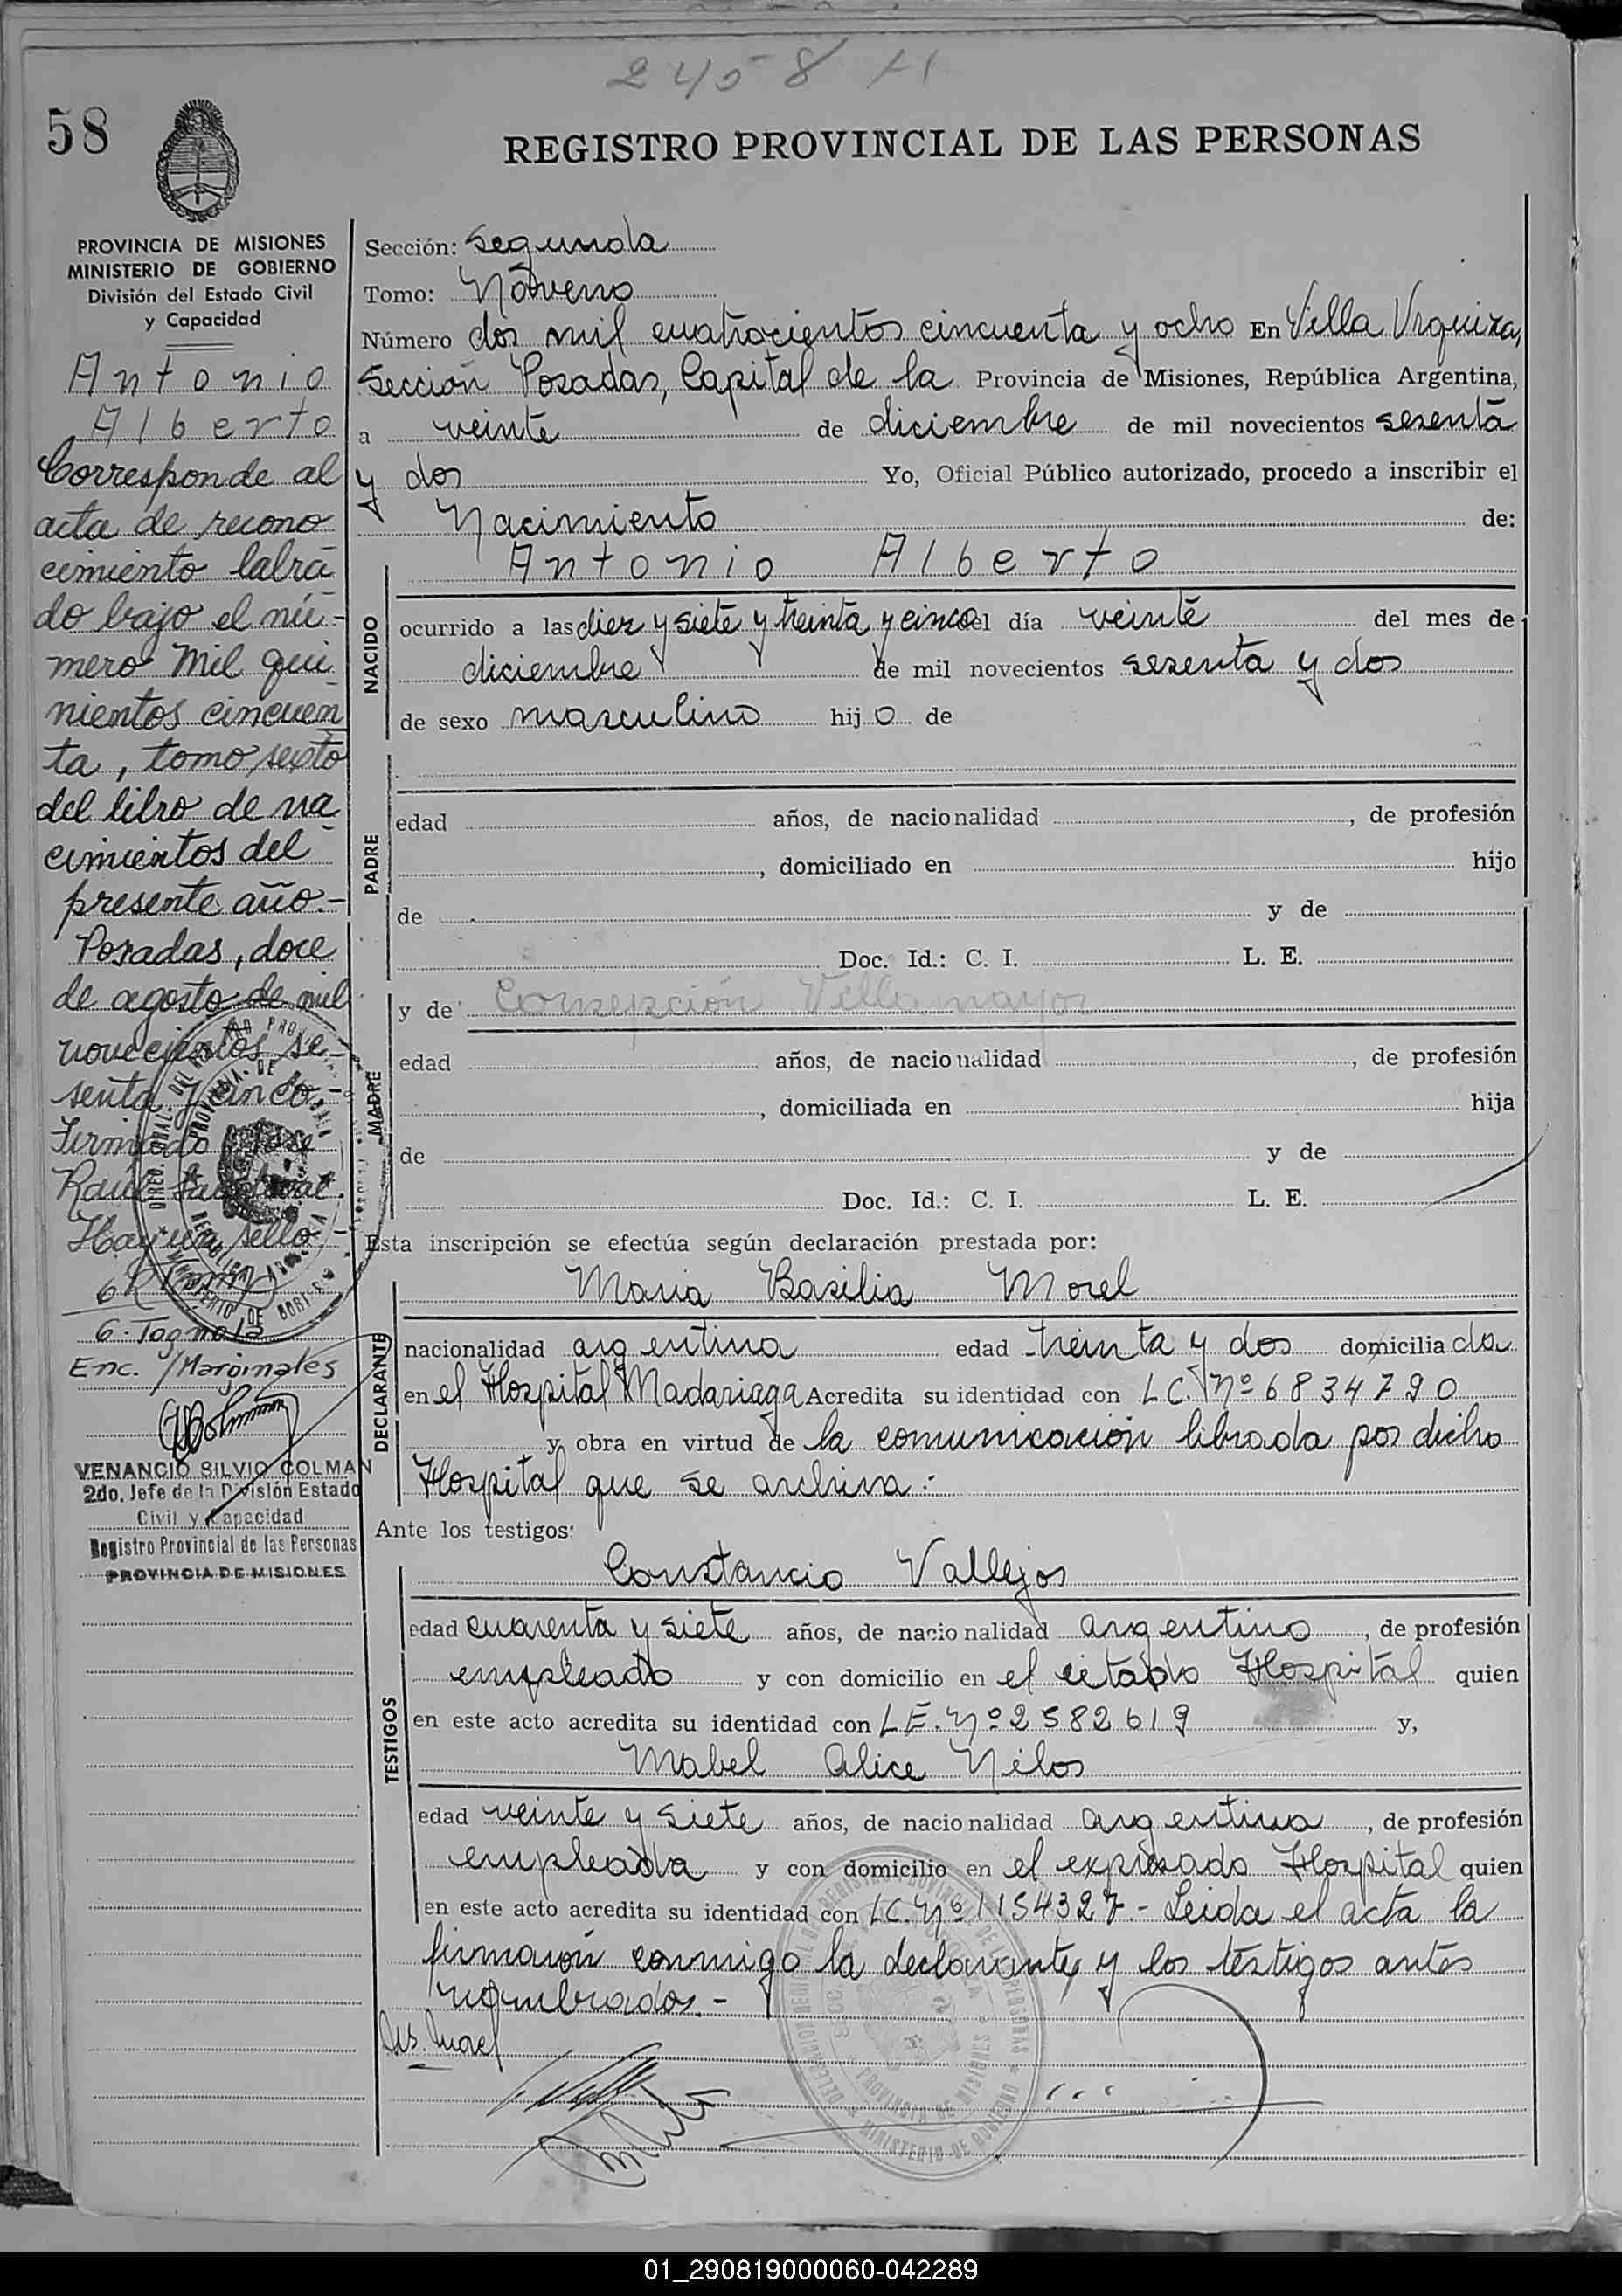 2458 H
58
REGISTRO PROVINCIAL DE LAS PERSONAS
PROVINCIA DE MISIONES
MINISTERIO DE GOBIERNO
División del Estado Civil
y Capacidad
Antonio
Alberto
Corresponde al
acta de recono
cimiento labra
do bajo el nú-
mero Mil qui
nientos cincuen
ta, tomo sexto
del libro de na
cimientos del
presente año.-
Posadas, doce
de agosto de mil
novecientos se-
senta y cinco.-
Firmado José
Raúl
Hay un sello.-
Enc. /Marginales
VENANCIO SILVIO COLMAN
2do. Jefe de la División Estado
Civil y Capacidad
Registro Provincial de las Personas
PROVINCIA DE MISIONES
Sección: Segunda
Tomo: Noveno
Número dos mil cuatrocientos cincuenta y ocho En Villa Urquiza,
Sección Posadas, Capital de la Provincia de Misiones, República Argentina,
a veinte de diciembre de mil novecientos sesenta
y dos Yo, Oficial Público autorizado, procedo a inscribir el
Nacimiento de:
Antonio Alberto
NACIDO
ocurrido a las diez y siete y treinta y cinco el día veinte del mes de
diciembre de mil novecientos sesenta y dos
de sexo masculino hijo de
PADRE
edad años, de nacionalidad , de profesión
, domiciliado en hijo
de y de
Doc. Id.: C. I. L. E.
y de Consepción Villamayor
MADRE
edad años, de nacionalidad , de profesión
, domiciliada en hija
de y de
Doc. Id.: C. I. L. E.
Esta inscripción se efectúa según declaración prestada por:
Maria Basilia Morel
DECLARANTE
nacionalidad argentina edad treinta y dos domiciliada
en el Hospital Madariaga Acredita su identidad con L.C. Nº 6834790
y obra en virtud de la comunicación librada por dicho
Hospital que se archiva:
Ante los testigos:
Constancio Vallejos
TESTIGOS
edad cuarenta y siete años, de nacionalidad argentino, de profesión
empleado y con domicilio en el citado Hospital quien
en este acto acredita su identidad con L.E. Nº 2582619 y,
Mabel Alice Nilos
edad veinte y siete años, de nacionalidad argentina, de profesión
empleada y con domicilio en el expresado Hospital quien
en este acto acredita su identidad con L.C. Nº 1154327.- Leida el acta la
firmaron conmigo la declarante y los testigos antes
nombrados.-
01_290819000060-042289